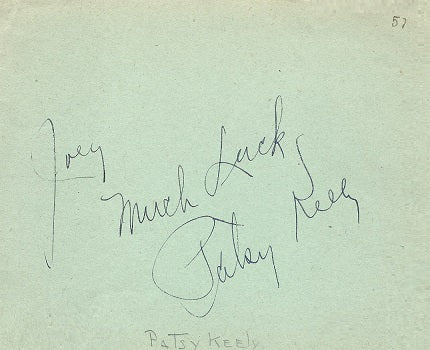 57
Joey
Much Luck
Patsy Kelly
PATSY KEELY